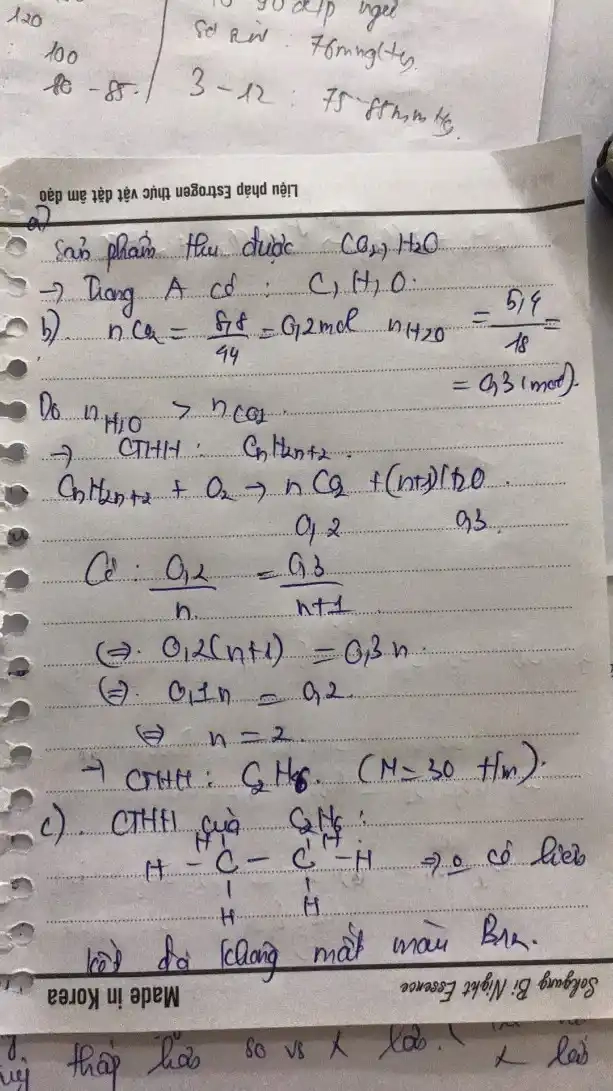 120
100
80 - 85.
76mmg
3 - 12 : 75-85mmHg.
Liệu pháp Estrogen thực vật dạt âm đạo
a)
Sản phẩm thu được CO2, H2O
→ Trong A có : C, H, O.
b). nCO2 = 8,8/44 = 0,2mol nH2O = 5,4/18 =
= 0,3 (mol).
Do nH2O > nCO2.
→ CTHH : CnH2n+2.
CnH2n+2 + O2 → nCO2 + (n+1)H2O.
0,2 0,3.
Có : 0,2/n = 0,3/n+1
(=). 0,2(n+1) = 0,3n.
(=). 0,1n = 0,2.
⇔ n = 2.
→ CTHH : C2H6. (M = 30 t/m).
c). CTHH của C2H6 :
H H
H - C - C - H ⇒ o có liên
H H
kết đôi không mất màu Br2.
Made in Korea
Sokgung Bi Night Essence
thấp hơn so vs